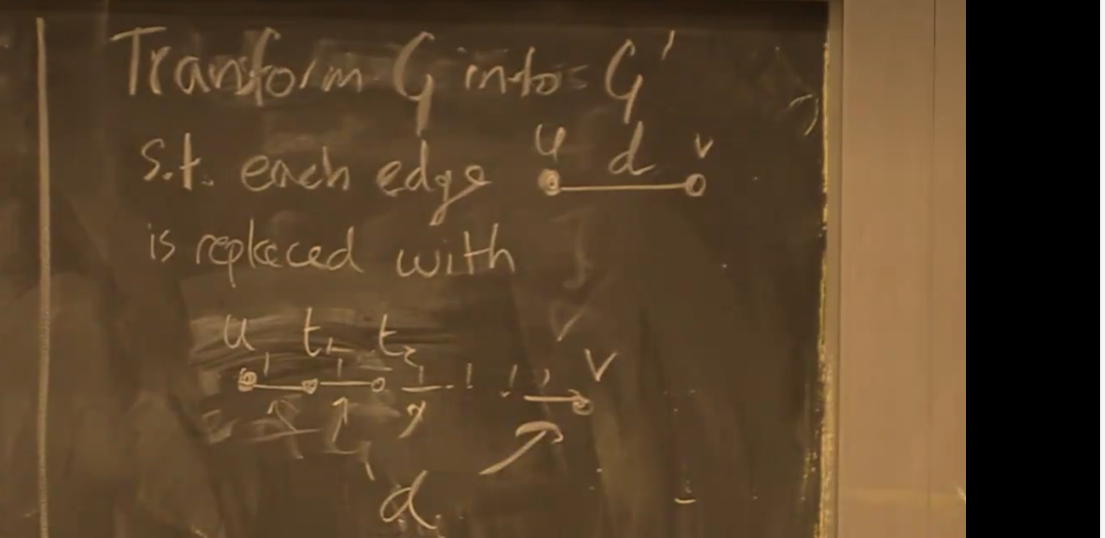 Transform G into G'
s.t. each edge u d v
is replaced with
u t₁ t₂ v
1 1 1 1
d